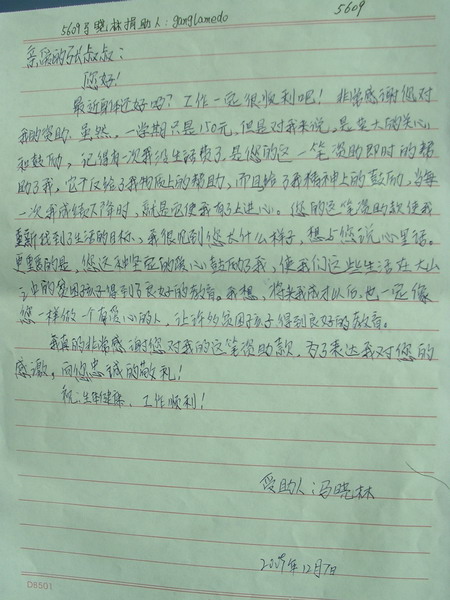 5609马晓林捐助人：ganglamedo
5609
亲爱的张叔叔：
您好！
最近你还好吗？工作一定很顺利吧！非常感谢您对
我的资助.虽然，一学期只是150元，但是对我来说，是莫大的关心
和鼓励，记得有一次我没生活费了，是您的这一笔资助即时的帮
助了我，它不仅给了我物质上的帮助，而且给了我精神上的鼓励，当每
一次我成绩下降时，就是它使我有了上进心。您的这笔资助款使我
重新找到了生活的目标、我很想到您长什么样子，想与您说心里话。
更重要的是，您这种坚定的爱心鼓励了我，使我们这些生活在大山
之中的贫困孩子得到了良好的教育。我想，将来我成才以后，也一定像
您一样做一个有爱心的人，让许多贫困孩子得到良好的教育。
我真的非常感谢您对我的这笔资助款，为了表达我对您的
感激，向您忠诚的敬礼！
祝：身体健康、工作顺利！
受助人：马晓林
2009年12月7日
D6501